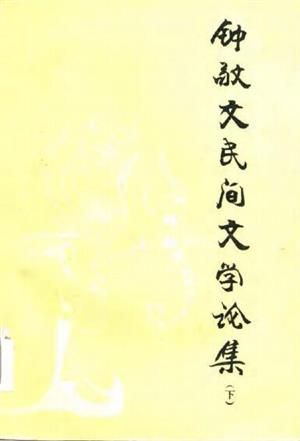 钟敬文民间文学论集(下)